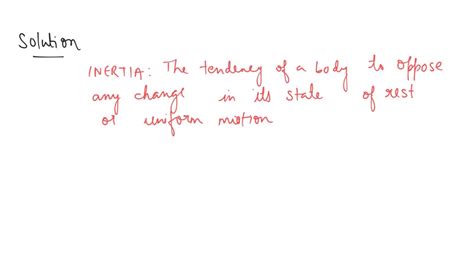 Solution
INERTIA: The tendency of a body to oppose
any change in its state of rest
or uniform motion